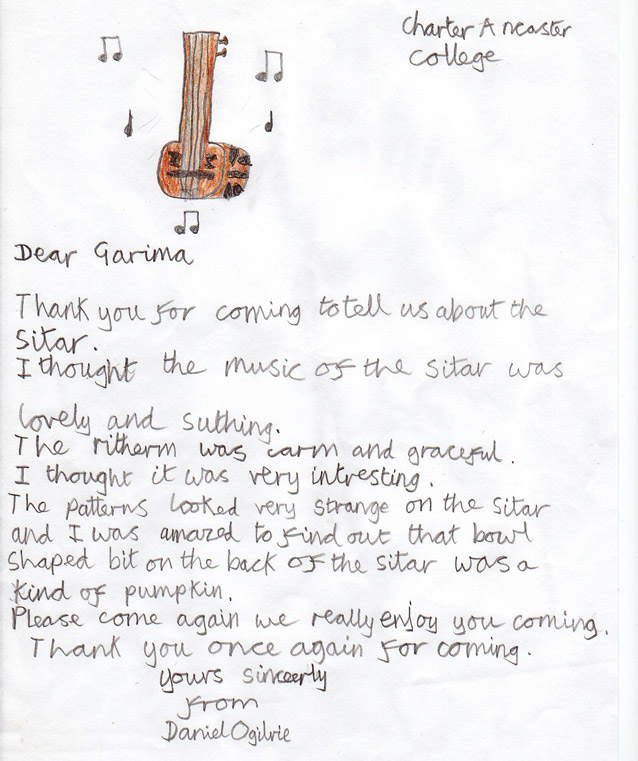 Charter Ancaster
College
Dear Garima
Thank you for coming to tell us about the
Sitar.
I thought the music of the sitar was
lovely and suthing.
The ritherm was carm and graceful.
I thought it was very intresting.
The patterns looked very strange on the sitar
and I was amazed to find out that bowl
shaped bit on the back of the sitar was a
kind of pumpkin.
Please come again we really enjoy you coming.
Thank you once again for coming.
yours sinceerly
from
Daniel Ogilvie